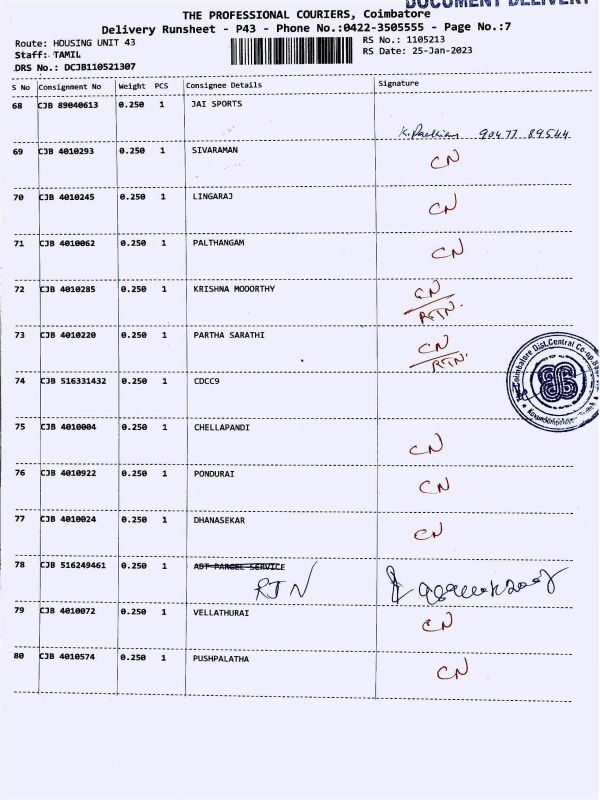 DOCUMENT DELIVERY
THE PROFESSIONAL COURIERS, Coimbatore
Delivery Runsheet - P43 - Phone No.:0422-3505555 - Page No.:7
Route: HOUSING UNIT 43 RS No.: 1105213
Staff: TAMIL RS Date: 25-Jan-2023
DRS No.: DCJB110521307
S No Consignment No Weight PCS Consignee Details Signature
68 CJB 89040613 0.250 1 JAI SPORTS
90477 89544
69 CJB 4010293 0.250 1 SIVARAMAN CN
70 CJB 4010245 0.250 1 LINGARAJ CN
71 CJB 4010062 0.250 1 PALTHANGAM CN
72 CJB 4010285 0.250 1 KRISHNA MOOORTHY CN
RTN.
73 CJB 4010220 0.250 1 PARTHA SARATHI CN
RTN.
74 CJB 516331432 0.250 1 CDCC9
Coimbatore Dist. Central Co-op. Bank
75 CJB 4010004 0.250 1 CHELLAPANDI CN
76 CJB 4010922 0.250 1 PONDURAI CN
77 CJB 4010024 0.250 1 DHANASEKAR CN
78 CJB 516249461 0.250 1 ABT PARCEL SERVICE
RTN
79 CJB 4010072 0.250 1 VELLATHURAI CN
80 CJB 4010574 0.250 1 PUSHPALATHA CN